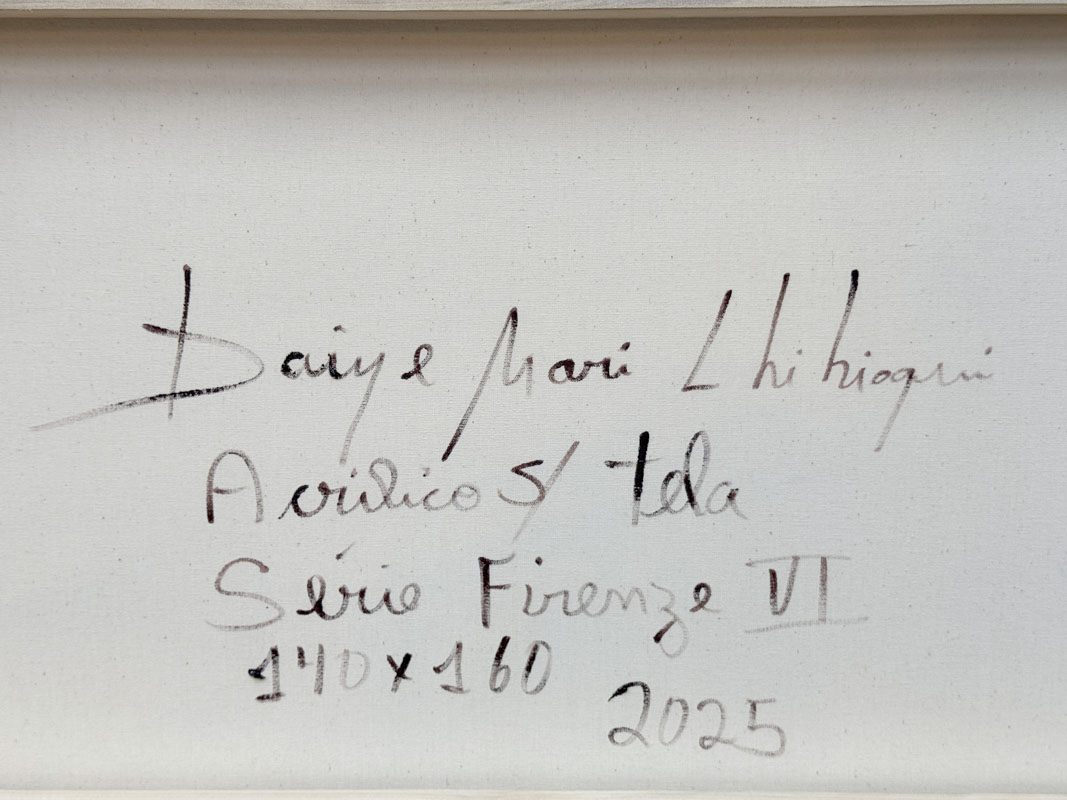 Daiye Mari Lhihioqui
Acrílico S/ tela
Série Firenze VI
140 x 160
2025